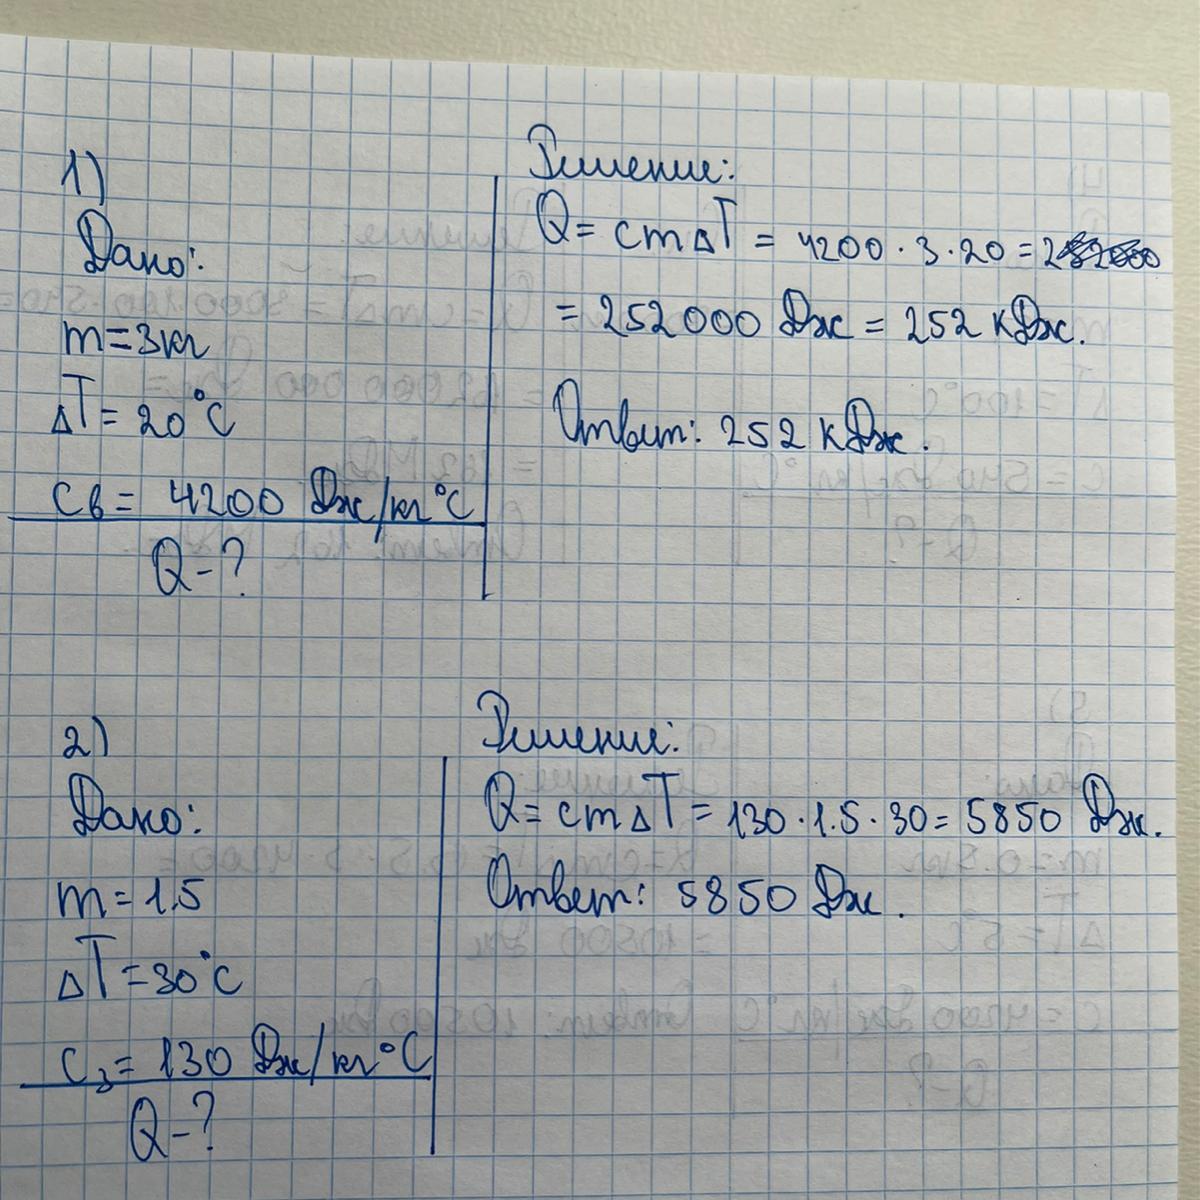 1)
Дано:
m=3кг
ΔT=20°C
cв= 4200 Дж/кг°C
Q-?
Решение:
Q= cmΔT = 4200·3·20 =
= 252000 Дж = 252 кДж.
Ответ: 252 кДж.
2)
Дано:
m=1.5
ΔT=30°C
cз=130 Дж/кг°C
Q-?
Решение:
Q= cmΔT=130·1.5·30= 5850 Дж.
Ответ: 5850 Дж.